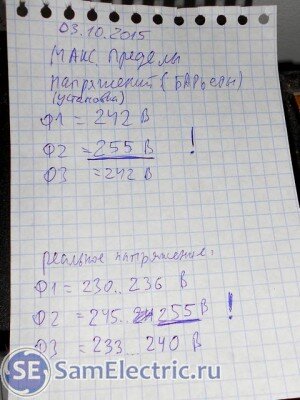 03.10.2015
МАКС. Пределы
напряжений (БАРЬЕРЫ)
(установка)
Ф1 = 242 В
Ф2 = 255 В !
Ф3 = 242 В
реальное напряжение:
Ф1 = 230.. 236 В
Ф2 = 245.. 255 В !
Ф3 = 233.. 240 В
SE SamElectric.ru